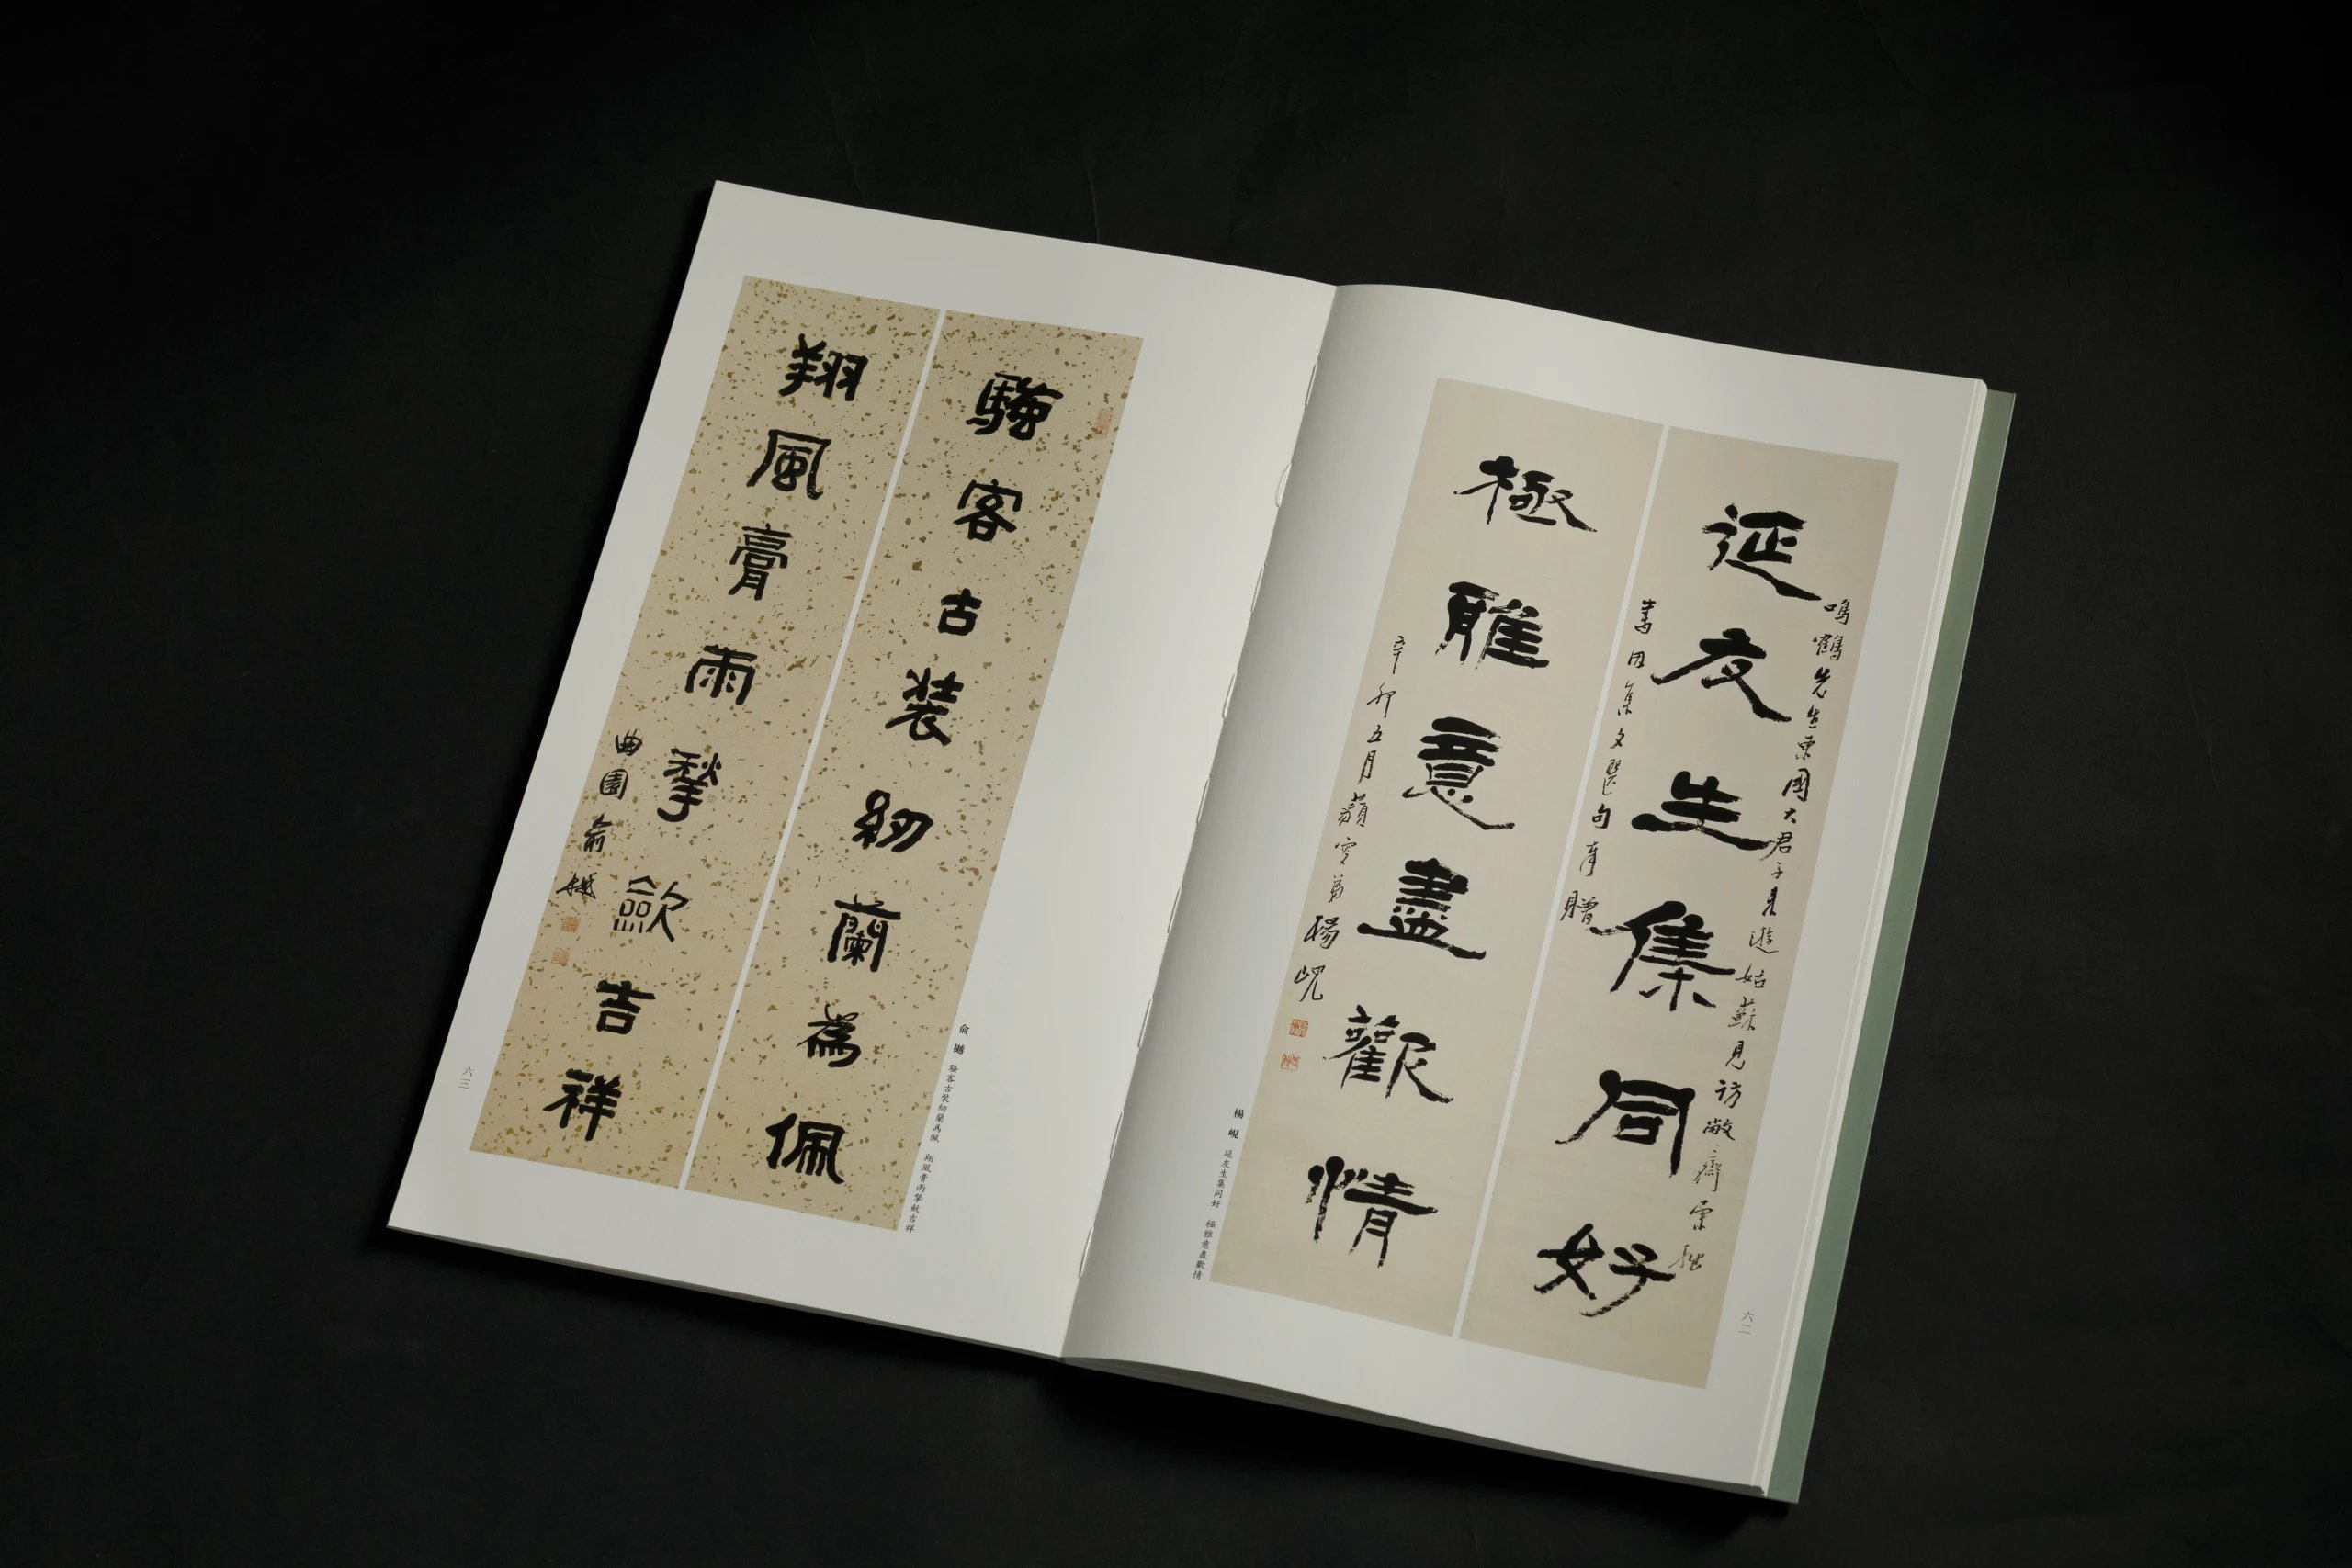 延友生集同好
鳴鶴先生東國大君子來遊姑蘇見訪敝齋索拙
書因集文選句奉贈
極雅意盡歡情
辛卯五月藐翁弟楊峴
楊峴 延友生集同好 極雅意盡歡情
六二
騷客古裝紉蘭為佩
翔風膏雨揫斂吉祥
曲園俞樾
俞樾 騷客古裝紉蘭為佩 翔風膏雨揫斂吉祥
六三